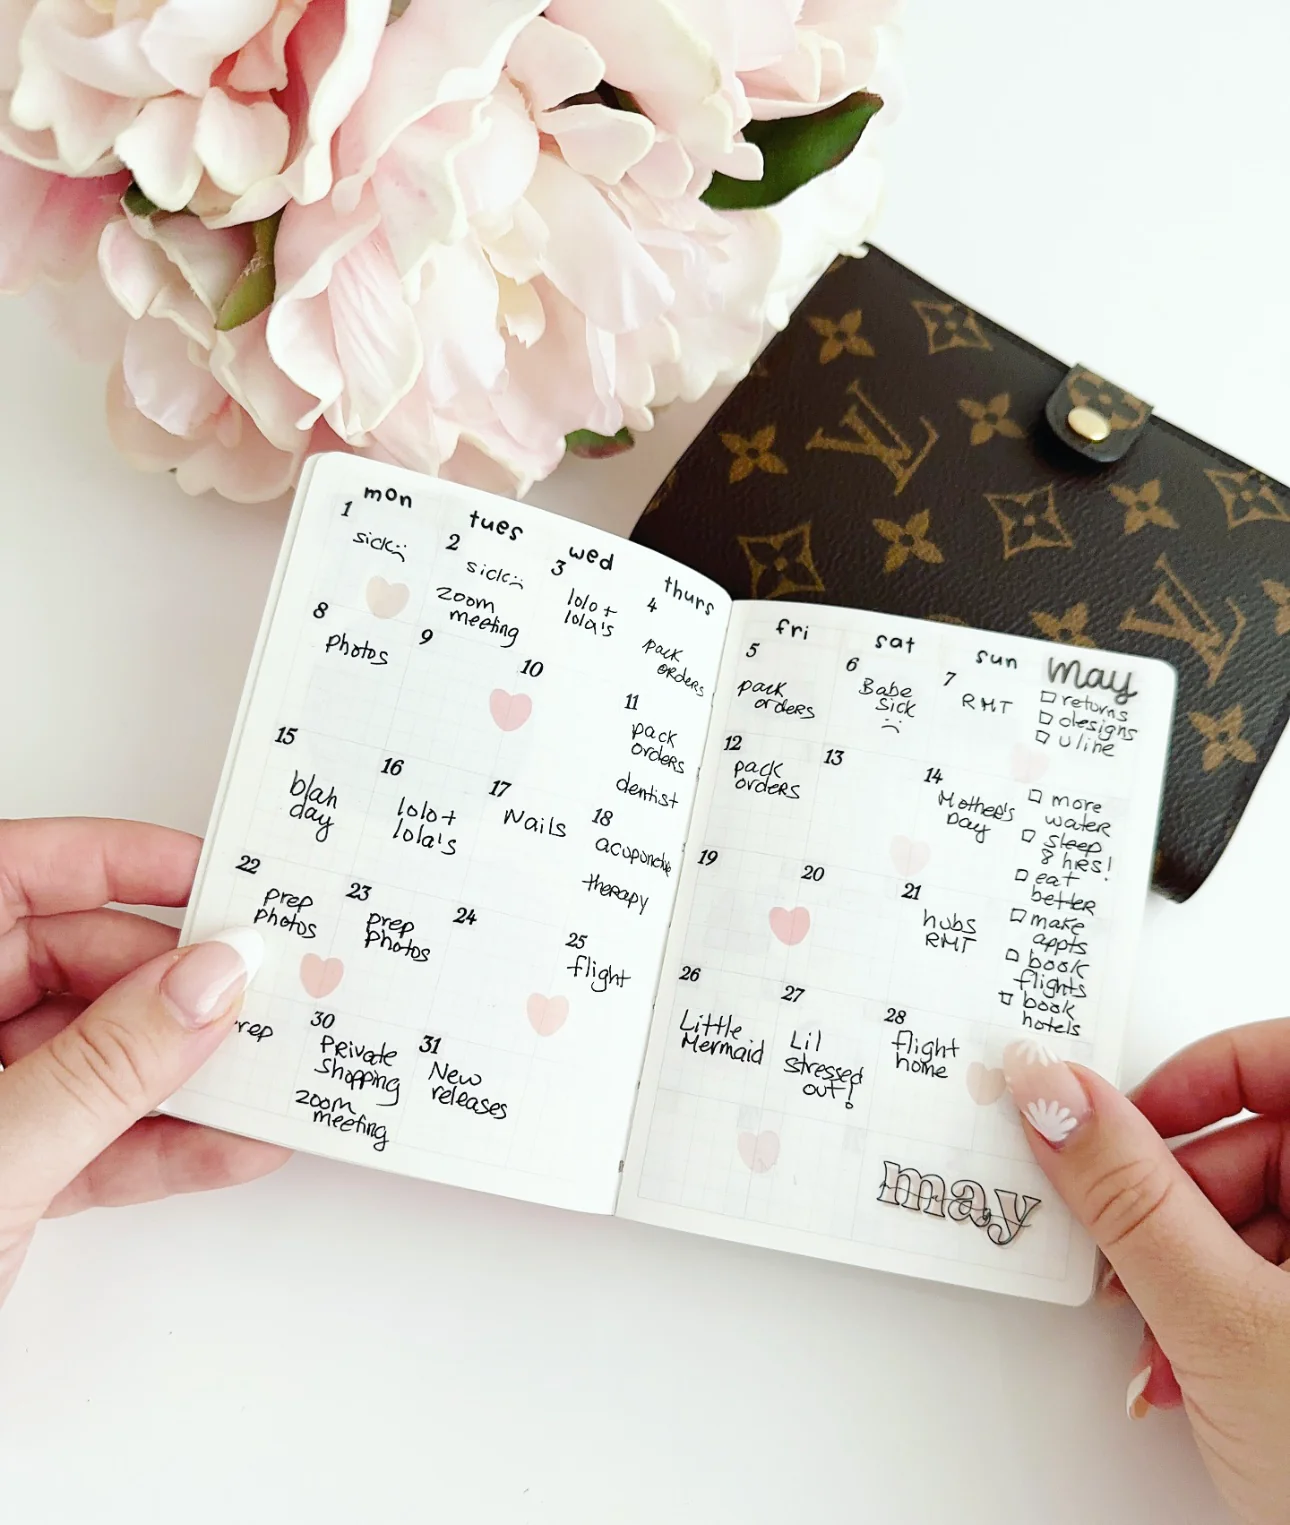 mon
tues
wed
thurs
fri
sat
sun
may
1
sick
2
sick
zoom
meeting
3
lolo +
lola's
4
pack
orders
5
pack
orders
6
Babe
sick
7
RMT
returns
designs
uline
8
Photos
9
10
11
pack
orders
dentist
12
pack
orders
13
14
Mother's
Day
more
water
sleep
8 hrs!
eat
better
make
appts
book
flights
book
hotels
15
blah
day
16
lolo +
lola's
17
Nails
18
therapy
19
20
21
hubs
RMT
22
prep
photos
23
prep
photos
24
25
flight
26
Little
Mermaid
27
Lil
stressed
out!
28
flight
home
rep
30
Private
shopping
zoom
meeting
31
New
releases
may
LV
LV